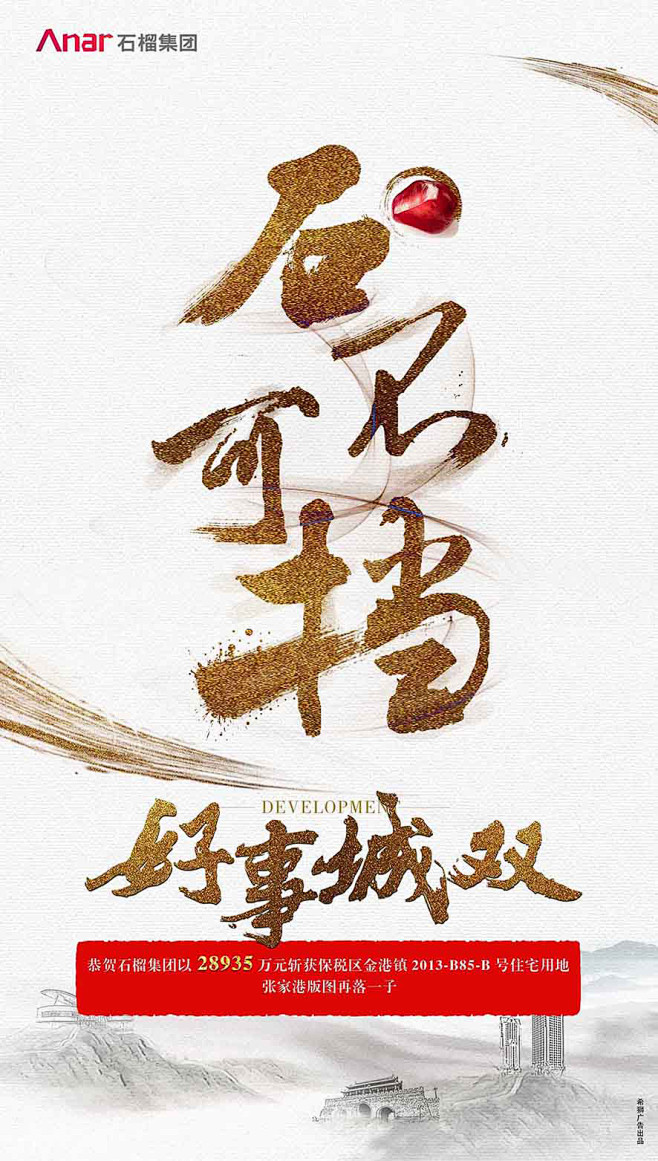 Anar 石榴集团
石不可挡
DEVELOPMENT
好事城双
恭贺石榴集团以 28935 万元斩获保税区金港镇 2013-B85-B 号住宅用地
张家港版图再落一子
希狮广告出品